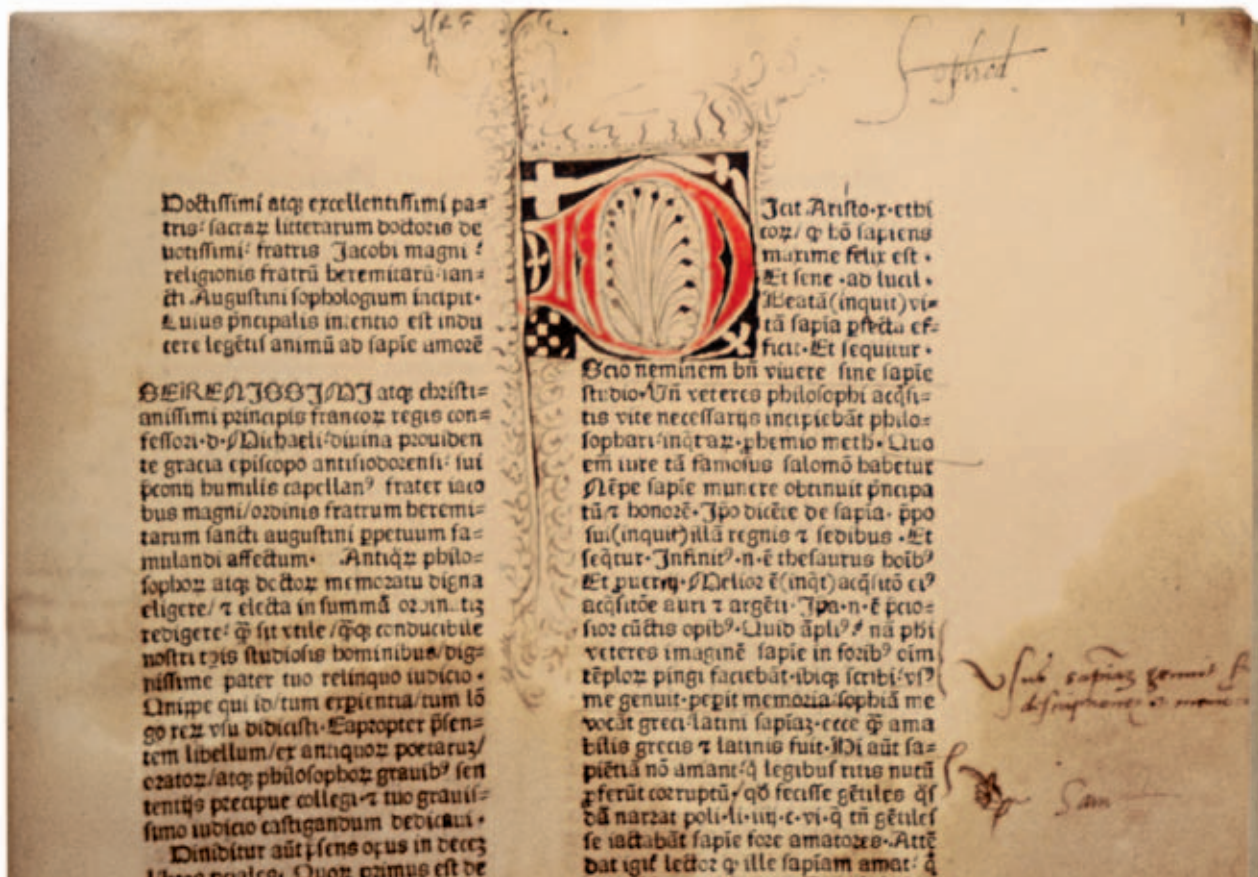 Doctissimi atqꝫ excellentissimi pa=
tris: sacraꝝ litterarum doctoris de
uotissimi: fratris Jacobi magni:
religionis fratrū heremitarū san=
cti Augustini sophologium incipit·
Cuius p̄ncipalis intencio est indu
cere legētis animū ad sapīe amorē
SERENISSIMI atqꝫ christi=
anissimi principis francoꝝ regis con=
fessori·d·Michaeli:diuina prouiden
te gracia episcopo antisiodorensi: sui
p̄conū humilis capellanꝰ frater iaco
bus magni/ordinis fratrum heremi=
tarum sancti augustini ꝑpetuum fa=
mulandi affectum· Antiqꝝ philo=
sophoꝝ atqꝫ doctoꝝ memoratu digna
eligere/ ⁊ electa in summā ordinatiꝫ
redigere: ꝙ̄ sit vtile/ꝙ̄qꝫ conducibile
nostri tꝑis studiosis hominibus/dig=
nissime pater tuo relinquo iudicio·
Quippe qui id/tum exꝑientia/tum lō
go reꝝ vsu didicisti·Eapropter p̄sen=
tem libellum/ex antiquoꝝ poetaruꝫ/
oratoꝝ/atqꝫ philosophoꝝ grauibꝰ sen
tentijs precipue collegi·⁊ tuo grauis=
simo iudicio castigandum dedicaui·
Diuiditur aūt p̄sens opus in deceꝫ
libros Quoꝝ primus est de
1
Sophol
D
Icit Aristo·x·ethi
coꝝ/ ꝙ hō sapiens
maxime felix est·
Et sene·ad lucil·
Beatā(inquit)vi=
tā sapīa ꝑfecta ef=
ficit·Et sequitur·
Scio neminem bn̄ viuere sine sapīe
studio·Vn̄ veteres philosophi acq̄si=
tis vite necessarijs incipiebāt philo=
sophari:inq̄raꝝ·ꝓhemio meth·Quo
em̄ iure tā famosus salomō habetur
Nēpe sapīe munere obtinuit p̄ncipa
tū ⁊ honorē·Ip̄o dicēte de sapīa· p̄po
sui(inquit)illā regnis ⁊ sedibus·Et
seq̄tur·Infinitꝰ·n·ē thesaurus hoībꝰ
Et ꝓuerꝫ·Melior ē(inq̄t)acq̄sitō eiꝰ
acq̄sitōe auri ⁊ argēti·Ip̄a·n·ē p̄cio=
sior cūctis opibꝰ·Quid āpliꝰ? nā phi
veteres imaginē sapīe in foribꝰ oīm
tēploꝝ pingi faciebāt·ibiqꝫ scribi:vsꝰ
me genuit·peꝑit memoria:sophiā me
vocāt greci:latini sapīaꝫ·ecce ꝙ̄ ama
bilis grecis ⁊ latinis fuit·Hi aūt sa=
piētiā nō amant:q̄ legibus ritis nutū
ꝓferūt corruptū/qd̄ fecisse gētiles q̄s
dā narrat poli·li·iiij·c·vi·q̄ tn̄ gētiles
se iactabāt sapīe fore amatores·Attē
dat igit lector ꝙ ille sapīam amat: q̄